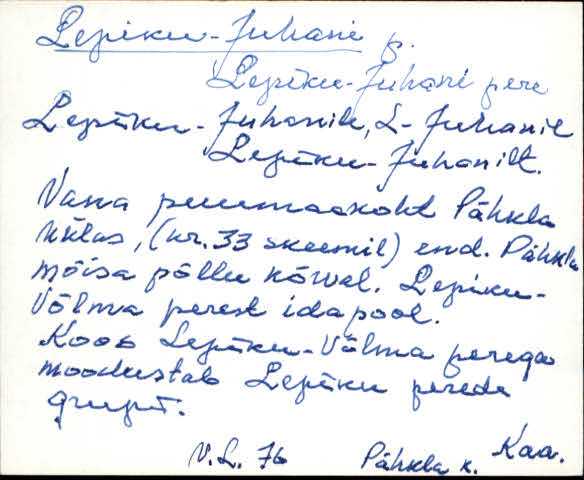 Lepiku-Juhani p.
Lepiku-Juhani pere
Lepiku-Juhanile, L-Juhanil
Lepiku-Juhanilt.
Vana puumaakoht Pähkla
külas, (nr. 33 skeemil) end. Pähkla
mõisa põllu kõrval. Lepiku-
Võlma perest idapool.
Koos Lepiku-Võlma perega
moodustab Lepiku perede
grupi.
V.L. 76 Pähkla k. Kaa.